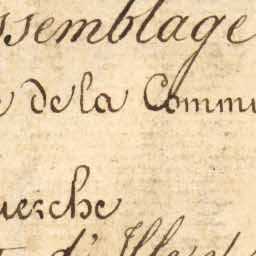 ssemblage
de la Commu
uerche
d'Ille